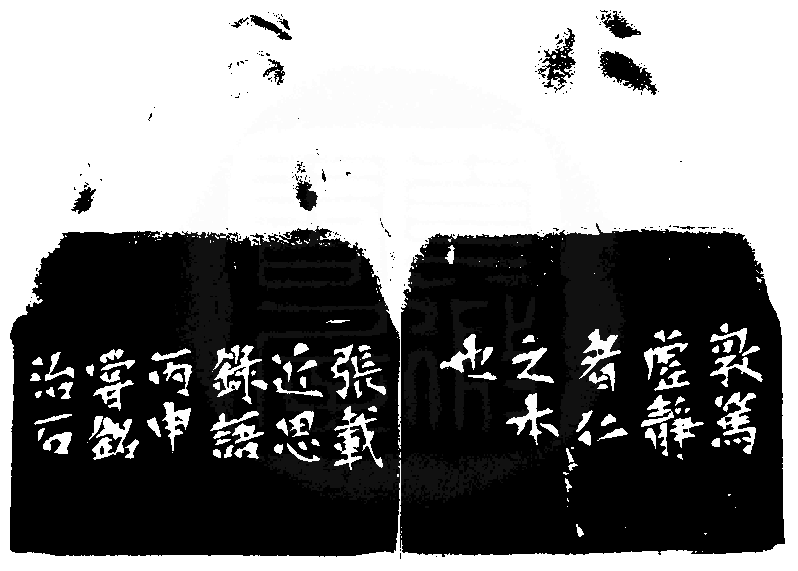 敦篤
虛靜
者仁
之本
也
張載
近思
錄語
丙申
甞
治石